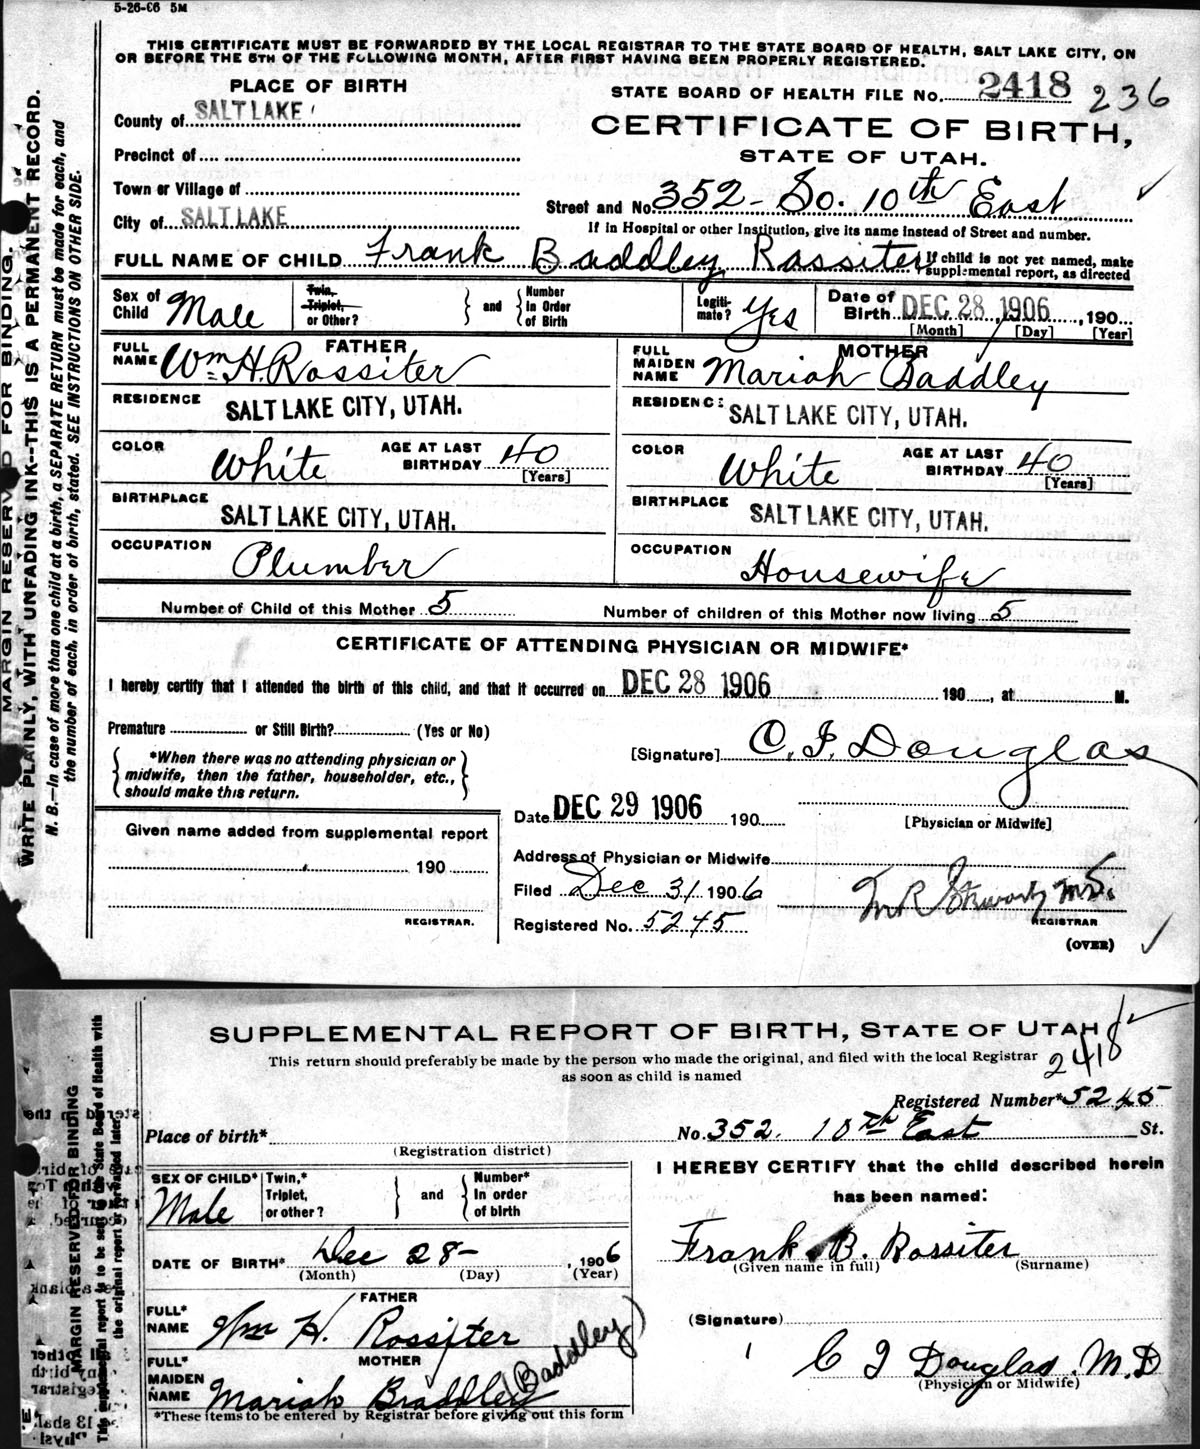 5-26-06 5M
THIS CERTIFICATE MUST BE FORWARDED BY THE LOCAL REGISTRAR TO THE STATE BOARD OF HEALTH, SALT LAKE CITY, ON
OR BEFORE THE 5TH OF THE FOLLOWING MONTH, AFTER FIRST HAVING BEEN PROPERLY REGISTERED.
PLACE OF BIRTH
STATE BOARD OF HEALTH FILE No. 2418 236
County of SALT LAKE
CERTIFICATE OF BIRTH,
Precinct of
STATE OF UTAH.
Town or Village of
Street and No. 352 - So. 10th East
City of SALT LAKE
If in Hospital or other Institution, give its name instead of Street and number.
FULL NAME OF CHILD Frank Baddley Rossiter
If child is not yet named, make
supplemental report, as directed
Sex of Child Male
Twin, Triplet, or Other? and Number In Order of Birth
Legitimate? Yes
Date of Birth DEC 28 1906, 190
[Month] [Day] [Year]
FATHER
FULL NAME Wm H. Rossiter
MOTHER
FULL MAIDEN NAME Mariah Baddley
RESIDENCE SALT LAKE CITY, UTAH.
RESIDENCE: SALT LAKE CITY, UTAH.
COLOR White AGE AT LAST BIRTHDAY 40 [Years]
COLOR White AGE AT LAST BIRTHDAY 40 [Years]
BIRTHPLACE SALT LAKE CITY, UTAH.
BIRTHPLACE SALT LAKE CITY, UTAH.
OCCUPATION Plumber
OCCUPATION Housewife
Number of Child of this Mother 5 Number of children of this Mother now living 5
CERTIFICATE OF ATTENDING PHYSICIAN OR MIDWIFE*
I hereby certify that I attended the birth of this child, and that it occurred on DEC 28 1906 190, at M.
Premature or Still Birth? (Yes or No)
[Signature] C. I. Douglas
*When there was no attending physician or
midwife, then the father, householder, etc.,
should make this return.
Date DEC 29 1906 190
[Physician or Midwife]
Given name added from supplemental report
190
REGISTRAR.
Address of Physician or Midwife
Filed Dec 31 1906
M.D.
REGISTRAR
Registered No. 5245
(OVER)
MARGIN RESERVED FOR BINDING.
WRITE PLAINLY, WITH UNFADING INK--THIS IS A PERMANENT RECORD.
N. B.--In case of more than one child at a birth, a SEPARATE RETURN must be made for each, and
the number of each, in order of birth, stated. SEE INSTRUCTIONS ON OTHER SIDE.
SUPPLEMENTAL REPORT OF BIRTH, STATE OF UTAH
This return should preferably be made by the person who made the original, and filed with the local Registrar
as soon as child is named
2418
Registered Number* 5245
Place of birth* No. 352. 10th East St.
(Registration district)
SEX OF CHILD* Male
Twin,* Triplet, or other? and Number* In order of birth
I HEREBY CERTIFY that the child described herein
has been named:
DATE OF BIRTH* Dec 28 - , 1906
(Month) (Day) (Year)
Frank B. Rossiter
(Given name in full) (Surname)
FATHER
FULL* NAME Wm H. Rossiter
(Signature)
MOTHER
FULL* MAIDEN NAME Mariah Braddley (Baddley)
C I Douglas. M.D
(Physician or Midwife)
*These items to be entered by Registrar before giving out this form
MARGIN RESERVED FOR BINDING